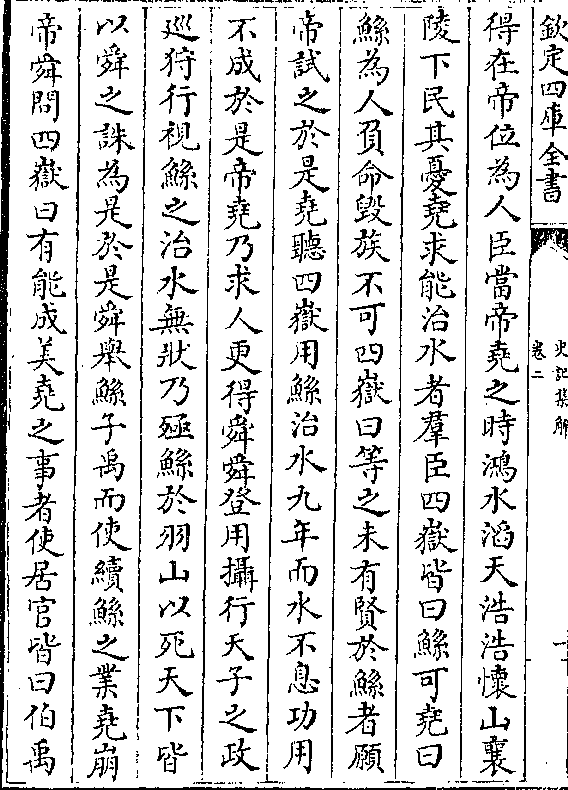 欽定四庫全書
史記集解
卷二
得在帝位為人臣當帝堯之時鴻水滔天浩浩懷山襄
陵下民其憂堯求能治水者羣臣四嶽皆曰鯀可堯曰
鯀為人負命毀族不可四嶽曰等之未有賢於鯀者願
帝試之於是堯聽四嶽用鯀治水九年而水不息功用
不成於是帝堯乃求人更得舜舜登用攝行天子之政
巡狩行視鯀之治水無狀乃殛鯀於羽山以死天下皆
以舜之誅為是於是舜舉鯀子禹而使續鯀之業堯崩
帝舜問四嶽曰有能成美堯之事者使居官皆曰伯禹